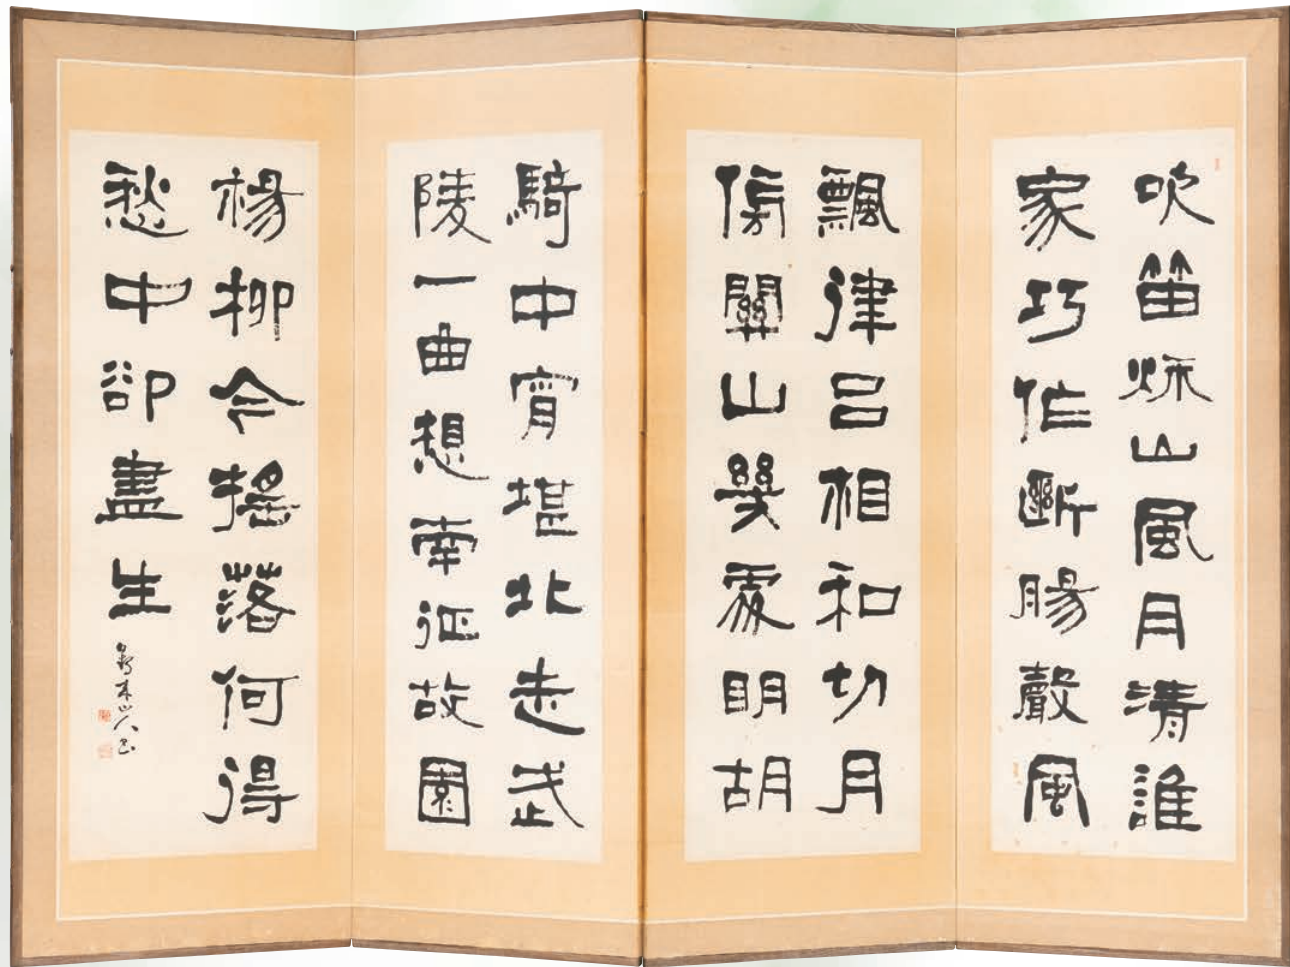 吹笛秌山風月清誰
家巧作斷腸聲風
飄律呂相和切月
傍關山幾處明胡
騎中宵堪北走武
陵一曲想南征故園
楊柳今搖落何得
愁中卻盡生
山人書